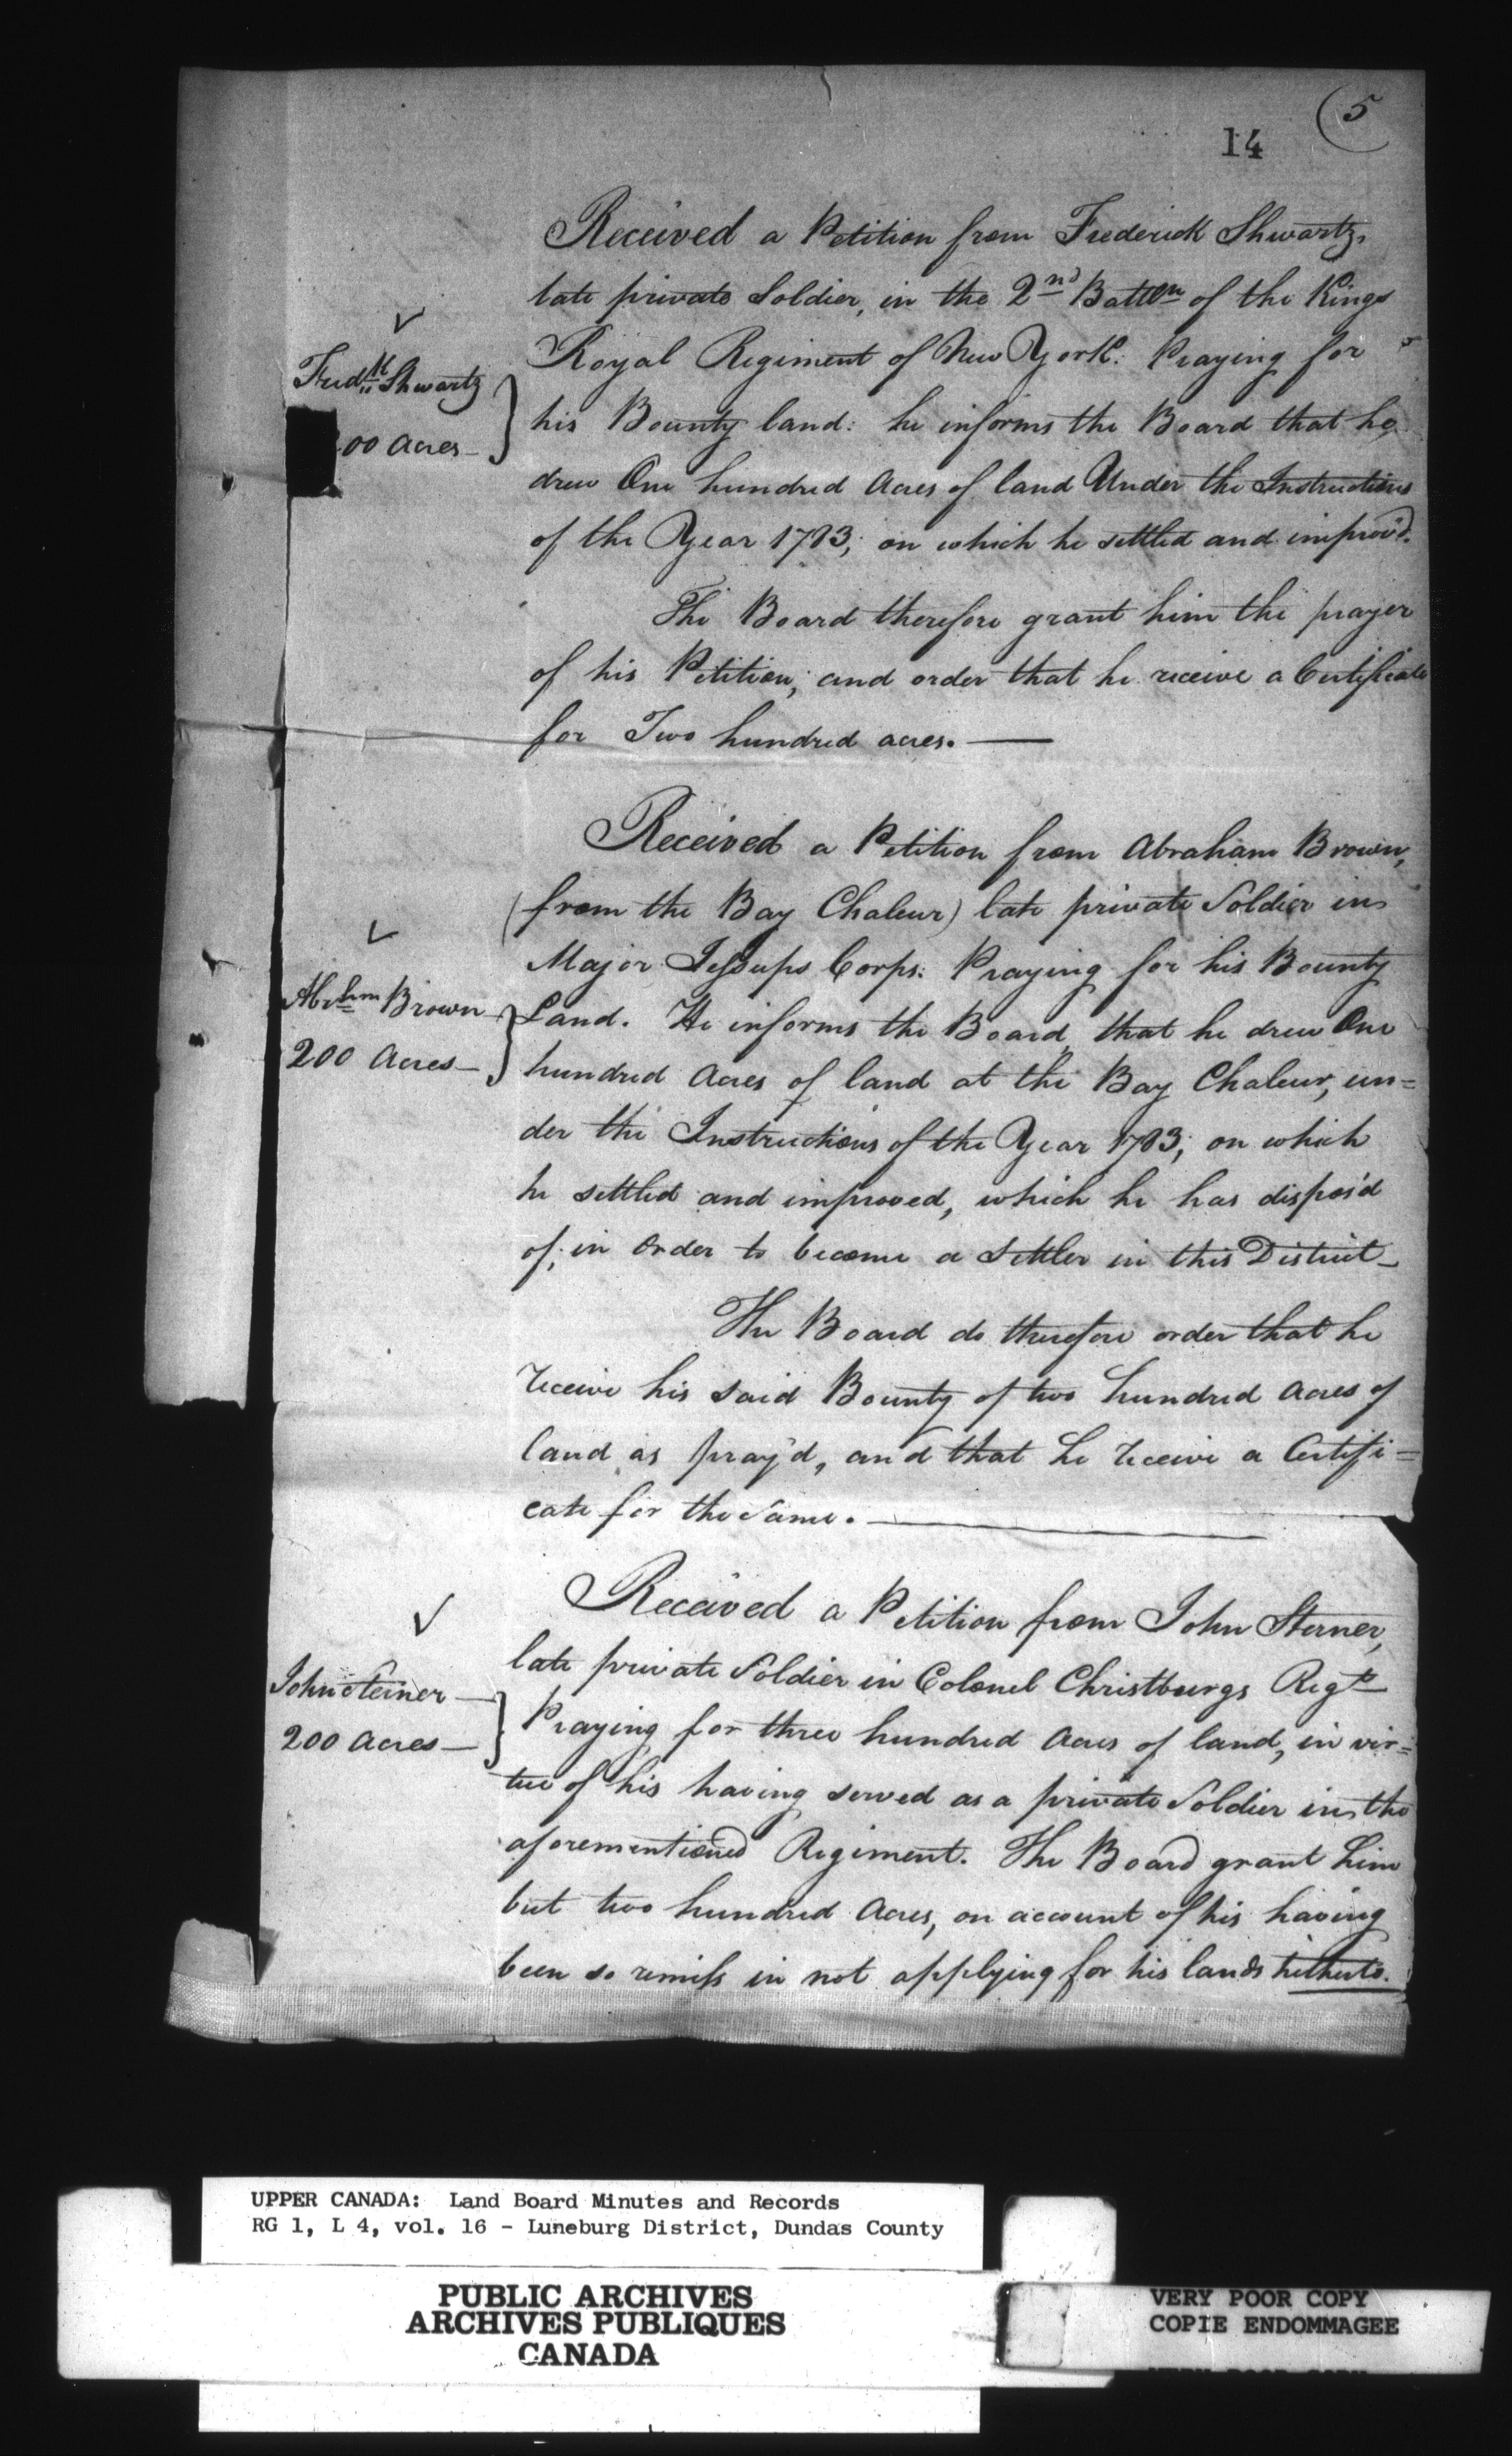 5
14
Received a Petition from Frederick Shwartz,
late private Soldier, in the 2nd Battn of the Kings
Royal Regiment of New York: Praying for
his Bounty land: he informs the Board that he
drew One hundred Acres of land Under the Instructions
of the Year 1783; on which he settled and improv'd.
Fredk Shwartz
00 Acres
The Board therefore grant him the prayer
of his Petition; and order that he receive a Certificate
for Two hundred acres.
Received a Petition from Abraham Brown,
(from the Bay Chaleur) late private Soldier in
Major Jessups Corps: Praying for his Bounty
Land. He informs the Board, that he drew One
hundred Acres of land at the Bay Chaleur, un=
der the Instructions of the Year 1783; on which
he settled and improved, which he has dispos'd
of; in Order to become a Settler in this District
Abrhm Brown
200 Acres
The Board do therefore order that he
receive his said Bounty of two hundred Acres of
land as pray'd, and that he receive a Certifi=
cate for the same.
Received a Petition from John Sterner,
late private Soldier in Colonel Christburgs Regt
Praying for three hundred Acres of land, in vir=
tue of his having served as a private Soldier in the
aforementioned Regiment. The Board grant him
but two hundred Acres, on account of his having
been so remiss in not applying for his lands hitherto.
John Steiner
200 Acres
UPPER CANADA: Land Board Minutes and Records
RG 1, L 4, vol. 16 - Luneburg District, Dundas County
PUBLIC ARCHIVES
ARCHIVES PUBLIQUES
CANADA
VERY POOR COPY
COPIE ENDOMMAGEE